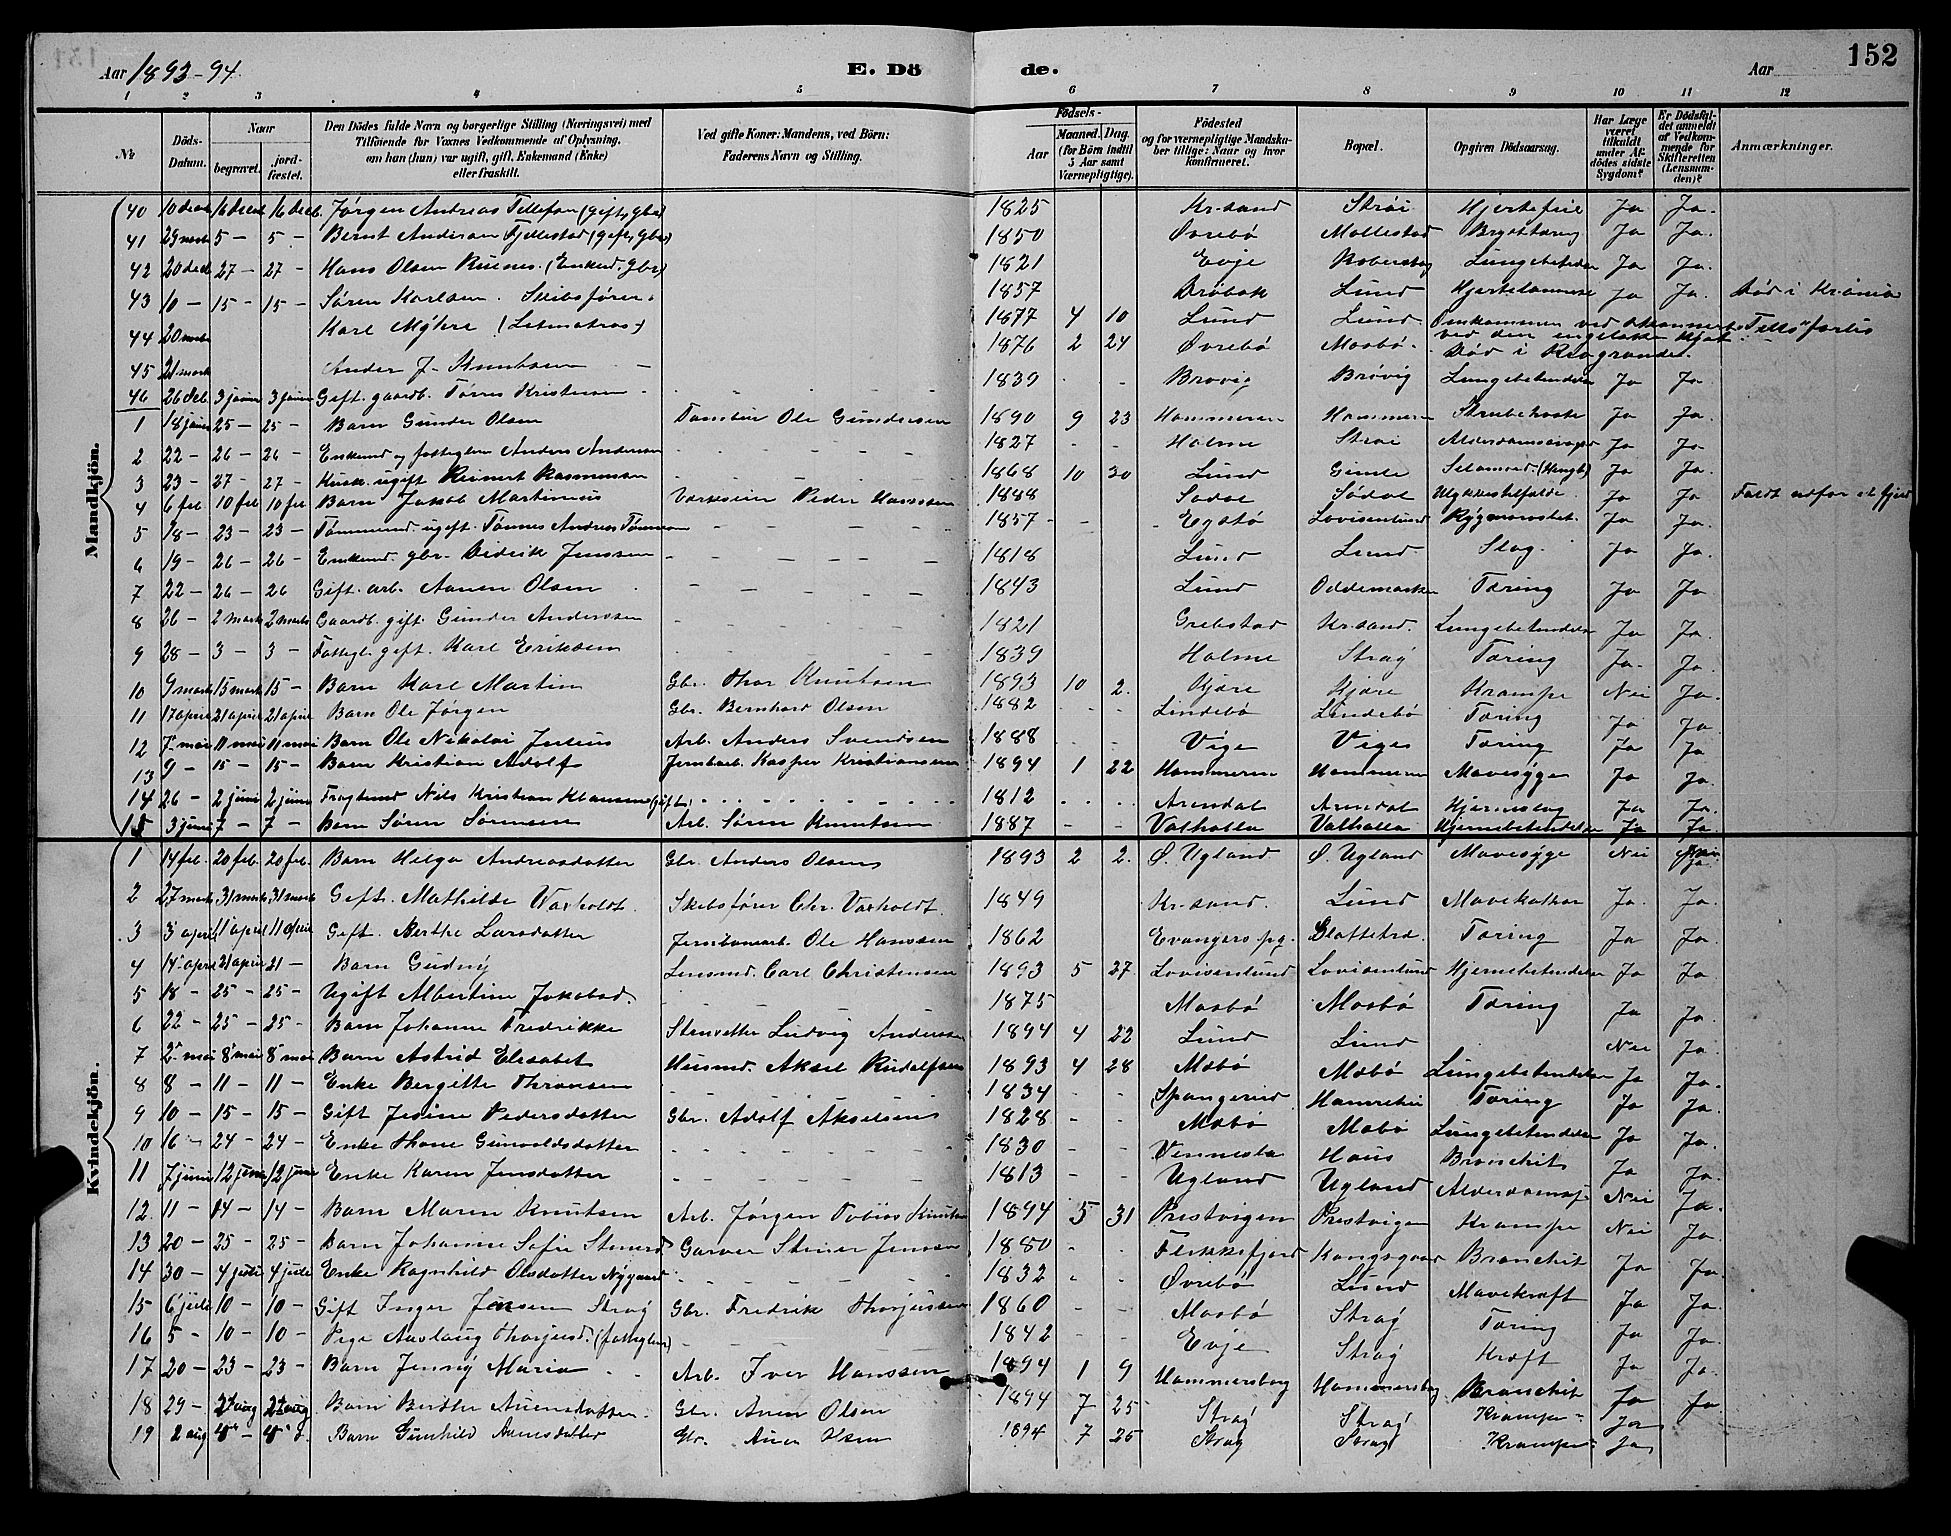 Aar 1893-94. E. Dö de. Aar 152
1 2 3 4 5 6 7 8 9 10 11 12
№ Döds-Datum. Naar begravet. jord-fæstet. Den Dödes fulde Navn og borgerlige Stilling (Næringsvei) med Tilföiende for Voxnes Vedkommende af Oplysning, om han (hun) var ugift, gift, Enkemand (Enke) eller fraskilt. Ved gifte Koner: Mandens, ved Börn: Faderens Navn og Stilling. Födsels- Aar Maaned. Dag. (for Börn indtil 5 Aar samt Værnepligtige). Födested og for værnepligtige Mandskaber tillige: Naar og hvor konfirmeret. Bopæl. Opgiven Dödsaarsag. Har Læge været tilkaldt under Afdödes sidste Sygdom? Er Dödsfaldet anmeldt af Vedkommende for Skifteretten (Lensmanden)? Anmærkninger.
Mandkjön.
40 10 decb 16 decb 16 decb. Jørgen Andreas Tellefsen (gift, gbr) 1825 Kr.sand Strøi Hjertefeil Ja Ja.
41 29 5 - 5 - Bernt Andersen Fjellestad (gift, gbr) 1850 Øvrebø Mollestad Brysttæring Ja Ja.
42 20 decb 27 - 27 - Hans Olsen (Enkemd, gbr) 1821 Evje Roberstag Lungebetendelse Ja Ja.
43 10 - 15 - 15 - Søren Karlsen. Skibsfører. 1857 Drøbak Lund Hjertelammelse Ja Ja. Død i Kr.ania
44 20 Karl Myhre (Letmatros) 1877 4 10 Lund Lund Omkommen ved
45 21 Anders J. Knudsen 1876 2 24 Øvrebø Mosbø. Død i Riogrande.
46 26 deb. 3 januar 3 januar Gift. gaardb. Tørres Kristensen 1839 - - Brøvig Brøvig Lungebetendelse Ja Ja.
1 18 januar 25 - 25 - Barn Gunder Olsen Tambur Ole Gundersen 1890 9 23 Hammeren Hammeren Strubehoste Ja Ja.
2 22 - 26 - 26 - Enkemd og fattiglem Anders Andersen 1827 - - Holme Strai Ja Ja
3 23 - 27 - 27 - ugift Reinert Rasmussen 1868 10 30 Lund Gimle Ja Ja
4 6 feb 10 feb 10 feb Barn Jakob Martinius Værkseier Peder Hanssen 1888 Sødal Sødal Ulykkestilfælde. Ja Ja Faldt udfor et fjeld
5 18 - 23 - 23 - Tømmermd. ugift. Tønnes Andreas Tønnesen 1857 - - Egstø Lovisenlund Ja Ja.
6 19 - 26 - 26 - Enkemd. gbr. Didrik Jenssen 1818 Lund Lund Slag. Ja Ja.
7 22 - 26 - 26 Gift. arb. Aanen Olsen 1843 Lund Oddemarken Tæring Ja Ja
8 26 - 2 marts 2 marts Gaardb. gift. Gunder Anderssen 1821 Grebstad Kr.sand. Lungebetendelse Ja Ja.
9 28 - 3 - 3 - Fattigl. gift. Karl Eriksen 1839 Holme Strag Tæring Ja. Ja.
10 9 marts 15 marts 15 - Barn Karl Martin Gbr. Thor Knutsen 1893 10 2. Kjære Kjære Krampe Nei Ja.
11 17 april 21 april 21 april Barn Ole Jørgen Gbr. Bernhard Olsen 1882 - - Lindebø Lindebø Tæring Ja Ja.
12 7 mai 11 mai 11 mai Barn Ole Nikolai Julius Arb. Anders Svendsen 1888 - - Vige Vige Tæring Ja Ja
13 9 - 15 - 15 - Barn Kristian Adolf Jernbarb. Kasper Kristiansen 1894 1 22 Hammeren Hammeren Mavesyge Ja Ja.
14 26 - 2 juni 2 juni Nils Kristian Klausen (gift) 1812 Arendal Arendal Hjerneslag Ja Ja.
15 3 juni 7 - 7 - Barn Søren Sørensen Arb. Søren Knutsen 1887 - - Valhalla Valhalla Hjernebetendelse Ja Ja
Kvindekjön.
1 14 feb. 20 feb. 20 feb. Barn Helga Andreasdatter Gbr. Anders Olsen 1893 2 2. Ø. Ugland Ø. Ugland Mavesyge Nei Ja.
2 27 marts 31 marts 31 marts Gift. Mathilde Vaxholdt. Skibsfører Chr. Vaxholdt. 1849 Kr.sand. Lund Mavekatar Ja. Ja.
3 3 april 11 april 11 april Gift. Berthe Larsdatter Jernbanearb. Ole Hanssen 1862 Evangers pg. Tæring Ja Ja.
4 14 april 21 april 21 - Barn Gudny Lensmd. Carl Christensen 1893 5 27. Lovisenlund Lovisenlund Hjernebetendelse Ja Ja
5 18 - 25 - 25 - Ugift Albertine Jakobsd. 1875 Mosbø Mosbø Tæring Ja Ja.
6 22 - 25 - 25 - Barn Johanne Fredrikke Ludvig Andersen 1894 4 22 Lund Lund Nei Ja.
7 2 mai 8 mai 8 mai Barn Astrid Elisabet Husmd. Aksel Rudolfsen 1893 4 28 Mæbø Mæbø Lungebetendelse Ja Ja.
8 8 - 11 - 11 - Enke Bergitte Thronsen 1834 - - Spangereid Hamrehei Tæring Ja Ja.
9 10 - 15 - 15 - Gift Jesine Pedersdatter Gbr. Adolf Akselsen 1828 - - Mæbø Mæbø Lungebetendelse Ja Ja.
10 16 - 24 - 24 - Enke Thone Gunvoldsdatter 1830 - - Vennesla Haus Bronchit Ja Ja.
11 7 juni 12 juni 12 juni Enke Karen Jensdatter 1813 - - Ugland Ugland Nei Ja.
12. 11 - 14 - 14 - Barn Maren Knutsen Arb. Jørgen Tobias Knutsen 1894 5 31 Prestvigen Prestvigen Krampe Nei Ja.
13 20 - 25 - 25 - Barn Johanne Sofie Steinersd Garver Steiner Jensen 1880 - - Flekkefjord Kongsgaard Bronchit Ja Ja.
14 30 - 4 juli 4 juli Enke Ragnhild Olsdatter Nygaard 1832 - - Øvrebø Lund Mavekræft Ja Ja.
15 6 juli 10 - 10 - Gift Inger Jensen Strag Gbr. Fredrik Thorjussen 1860 - - Mosbø Strag Tæring Ja Ja.
16 5 - 10 - 10 - Pige Aaslaug Thorjusd. (fattiglem) 1842 - - Evje Strag Kræft Ja Ja.
17 20 - 23 - 23 - Barn Jenny Maria Arb. Iver Hanssen 1894 1 9 Hammersborg Hammersborg Bronchit Ja Ja
18 29 - aug aug. Barn Berthe Auensdatter. Gbr. Auen Olsen 1894 7 25 Strag Strag Krampe Ja
19 2 aug 4 - 4 - Barn Gunhild Auensdatter Gbr. Auen Olsen 1894 7 25 Strag Strag Krampe Ja